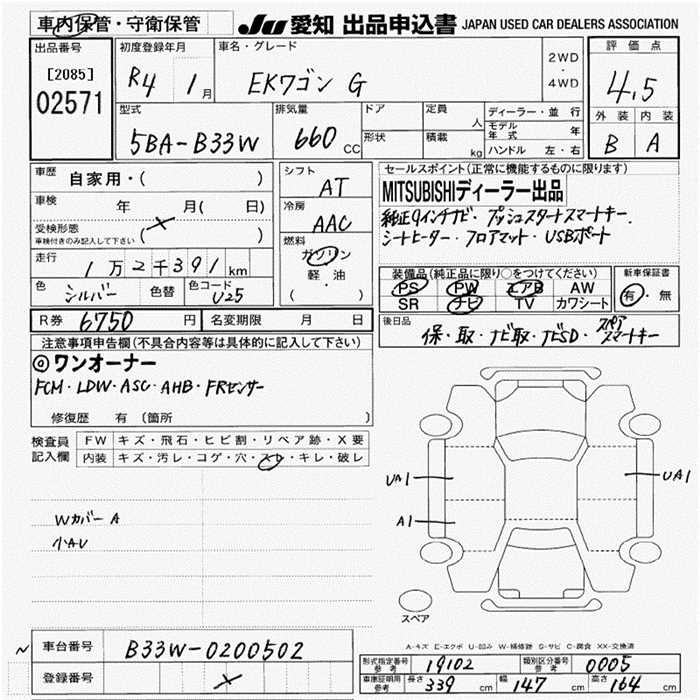 車内保管・守衛保管
JU 愛知 出品申込書 JAPAN USED CAR DEALERS ASSOCIATION
出品番号
[2085]
02571
初度登録年月
R4 1月
車名・グレード
EKワゴン G
2WD
・
4WD
評価点
4.5
外装 内装
B A
型式
5BA-B33W
排気量
660 CC
ドア
形状
定員 人
積載 kg
ディーラー・並行
モデル年式 年
ハンドル 左・右
車歴 自家用・( )
車検 年 月( 日)
受検形態
車検付きのみ記入して下さい ( × )
走行 1万2千391km
色 シルバー 色替 色コード U25
シフト
AT
冷房
AAC
燃料
ガソリン
軽・油
( ・ )
セールスポイント(正常に機能するものに限ります)
MITSUBISHIディーラー出品
純正9インチナビ・プッシュスタートスマートキー.
シートヒーター・フロアマット・USBポート
装備品(純正品に限り○をつけてください)
PS PW エアB AW
SR ナビ TV カワシート
新車保証書
有・無
R券 6750円 名変期限 月 日
後日品
保・取・ナビ取・ナビSD・スペアスマートキー
注意事項申告欄(不具合内容等は具体的に記入して下さい)
◎ワンオーナー
FCM・LDW・ASC・AHB・FRセンサー
修復歴 有 〔箇所 〕
検査員記入欄
FW キズ・飛石・ヒビ割・リペア跡・X要
内装 キズ・汚レ・コゲ・穴・スレ・キレ・破レ
Wカバー A
小AU
UA1
A1
UA1
スペア
A-キズ E-エクボ U-凹み W-補修跡 S-サビ C-腐食 XX-交換済
車台番号 B33W-0200502
登録番号 ×
形式指定番号 参考 19102 類別区分番号 参考 0005
車庫証明用 参考 長さ 339cm 幅 147cm 高さ 164cm